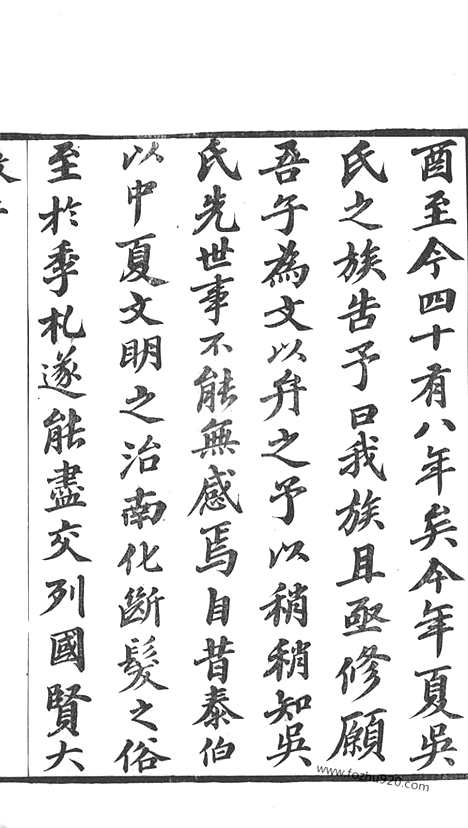 酉至今四十有八年矣今年夏吳
氏之族告予曰我族且亟修願
吾子為文以弁之予以稍稍知吳
氏先世事不能無感焉自昔泰伯
以中夏文明之治南化斷髮之俗
至於季札遂能盡交列國賢大
www.fozhu920.com